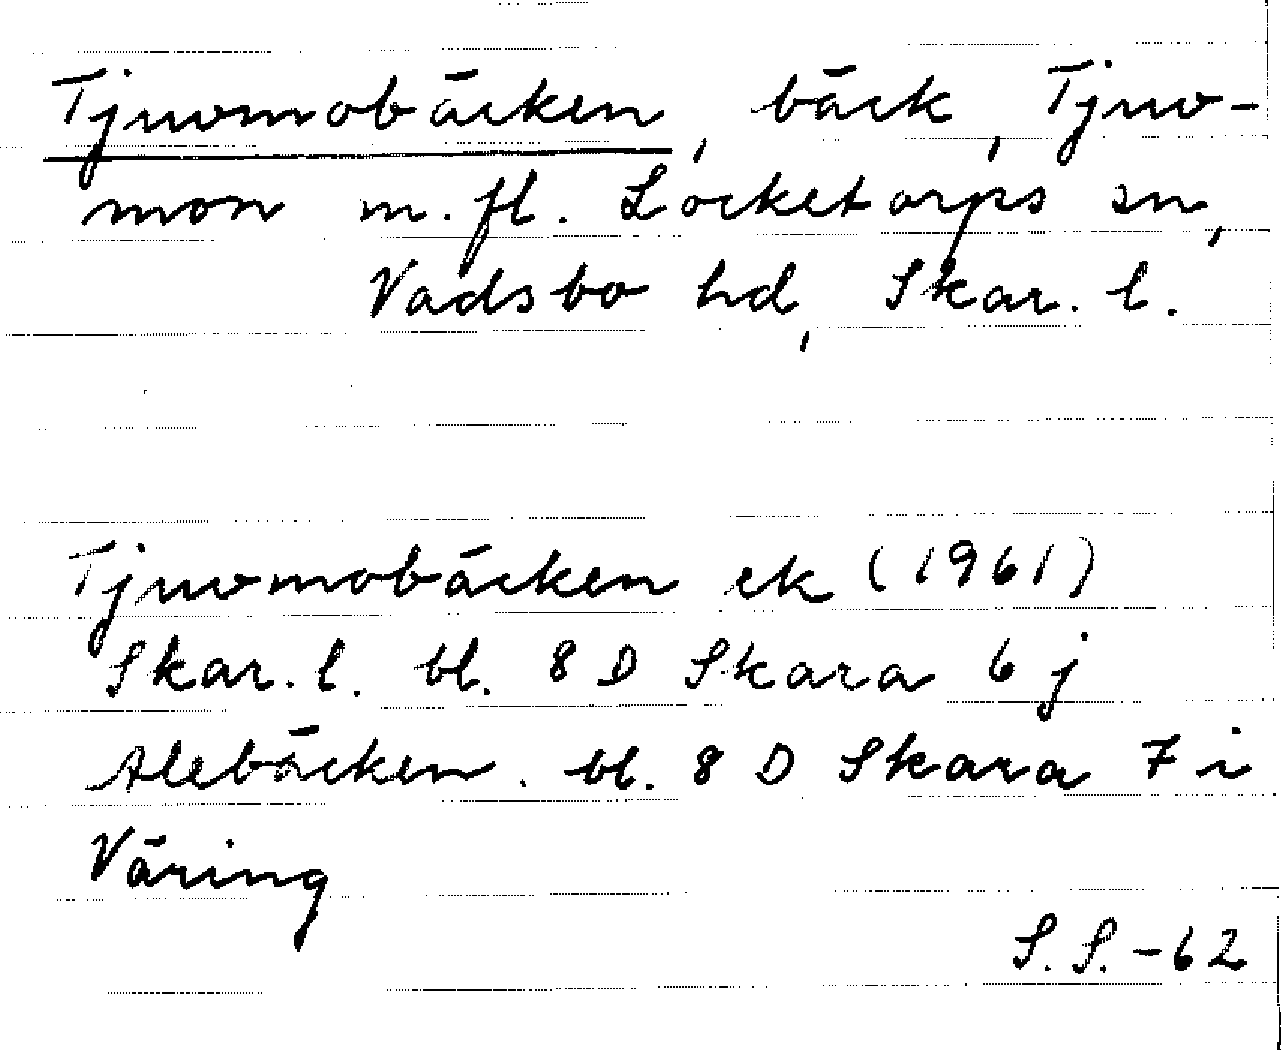 Tjuvmobäcken, bäck, Tjuv-
mon m.fl. Locketorps sn,
Vadsbo hd, Skar. l.
Tjuvmobäcken ek (1961)
Skar. l. bl. 8 D Skara 6 j
Alebäcken. bl. 8 D Skara 7 i
Väring
S.S. -62